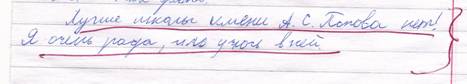 Лучше школы имени А.С. Попова нет!
Я очень рада, что учусь в ней